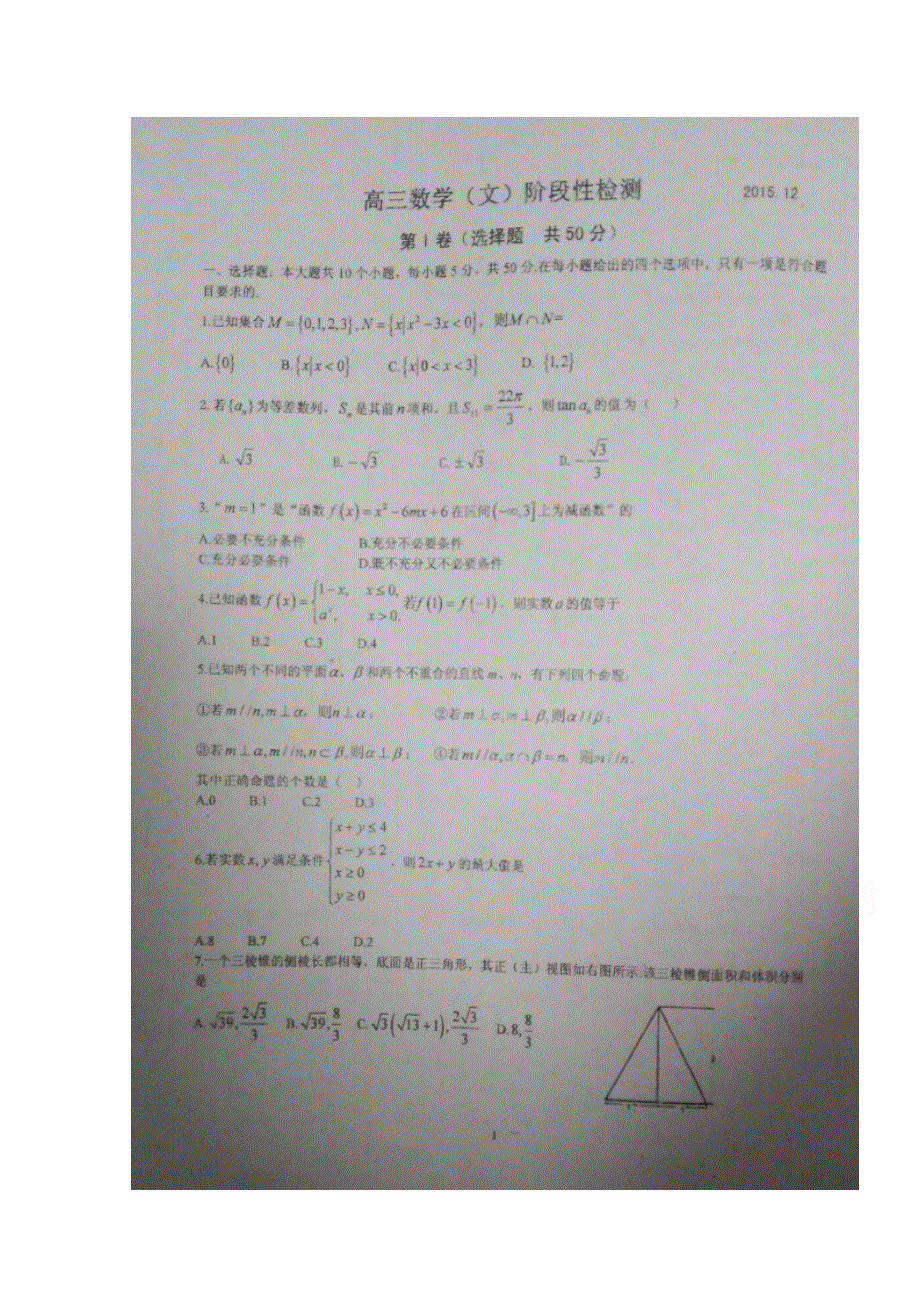 高三数学（文）阶段性检测 2015.12
第 I 卷（选择题 共 50 分）
一、选择题：本大题共 10 个小题，每小题 5 分，共 50 分.在每小题给出的四个选项中，只有一项是符合题
目要求的.
1.已知集合 M = {0,1,2,3}, N = {x|x² − 3x < 0}，则M ∩ N=
A.{0} B.{x|x < 0} C.{x|0 < x < 3} D. {1,2}
2. 若{aₙ}为等差数列，Sₙ 是其前 n 项和，且 S₁₁ = 22π/3，则 tan a₆ 的值为（ ）
A. √3 B. −√3 C. ±√3 D. −√3/3
3. “m = 1” 是 “函数 f(x) = x² − 6mx + 6 在区间(−∞,3]上为减函数” 的
A.必要不充分条件 B.充分不必要条件
C.充分必要条件 D.既不充分又不必要条件
4.已知函数 f(x) = {1 − x, x ≤ 0, aˣ, x > 0, 若f(1) = f(−1)，则实数 a 的值等于
A.1 B.2 C.3 D.4
5.已知两个不同的平面α、β 和两个不重合的直线 m、n，有下列四个命题：
①若 m//n,m ⊥ α，则n ⊥ α； ②若 m ⊥ α,m ⊥ β,则α//β；
③若 m ⊥ α,m//n,n ⊂ β,则α ⊥ β； ④若 m//α,α ∩ β = n，则m//n.
其中正确命题的个数是（ ）
A.0 B.1 C.2 D.3
6.若实数 x, y 满足条件{x + y ≤ 4 x − y ≤ 2 x ≥ 0 y ≥ 0，则 2x + y 的最大值是
A.8 B.7 C.4 D.2
7.一个三棱锥的侧棱长都相等，底面是正三角形，其正（主）视图如右图所示.该三棱锥侧面积和体积分别
是
A. √39, 2√3/3 B. √39, 8/3 C. √3(√13+1), 2√3/3 D. 8, 8/3
1